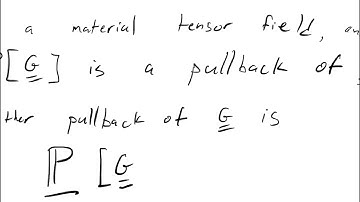 a material tensor field,
[G] is a pullback of
pullback of G is
P [G